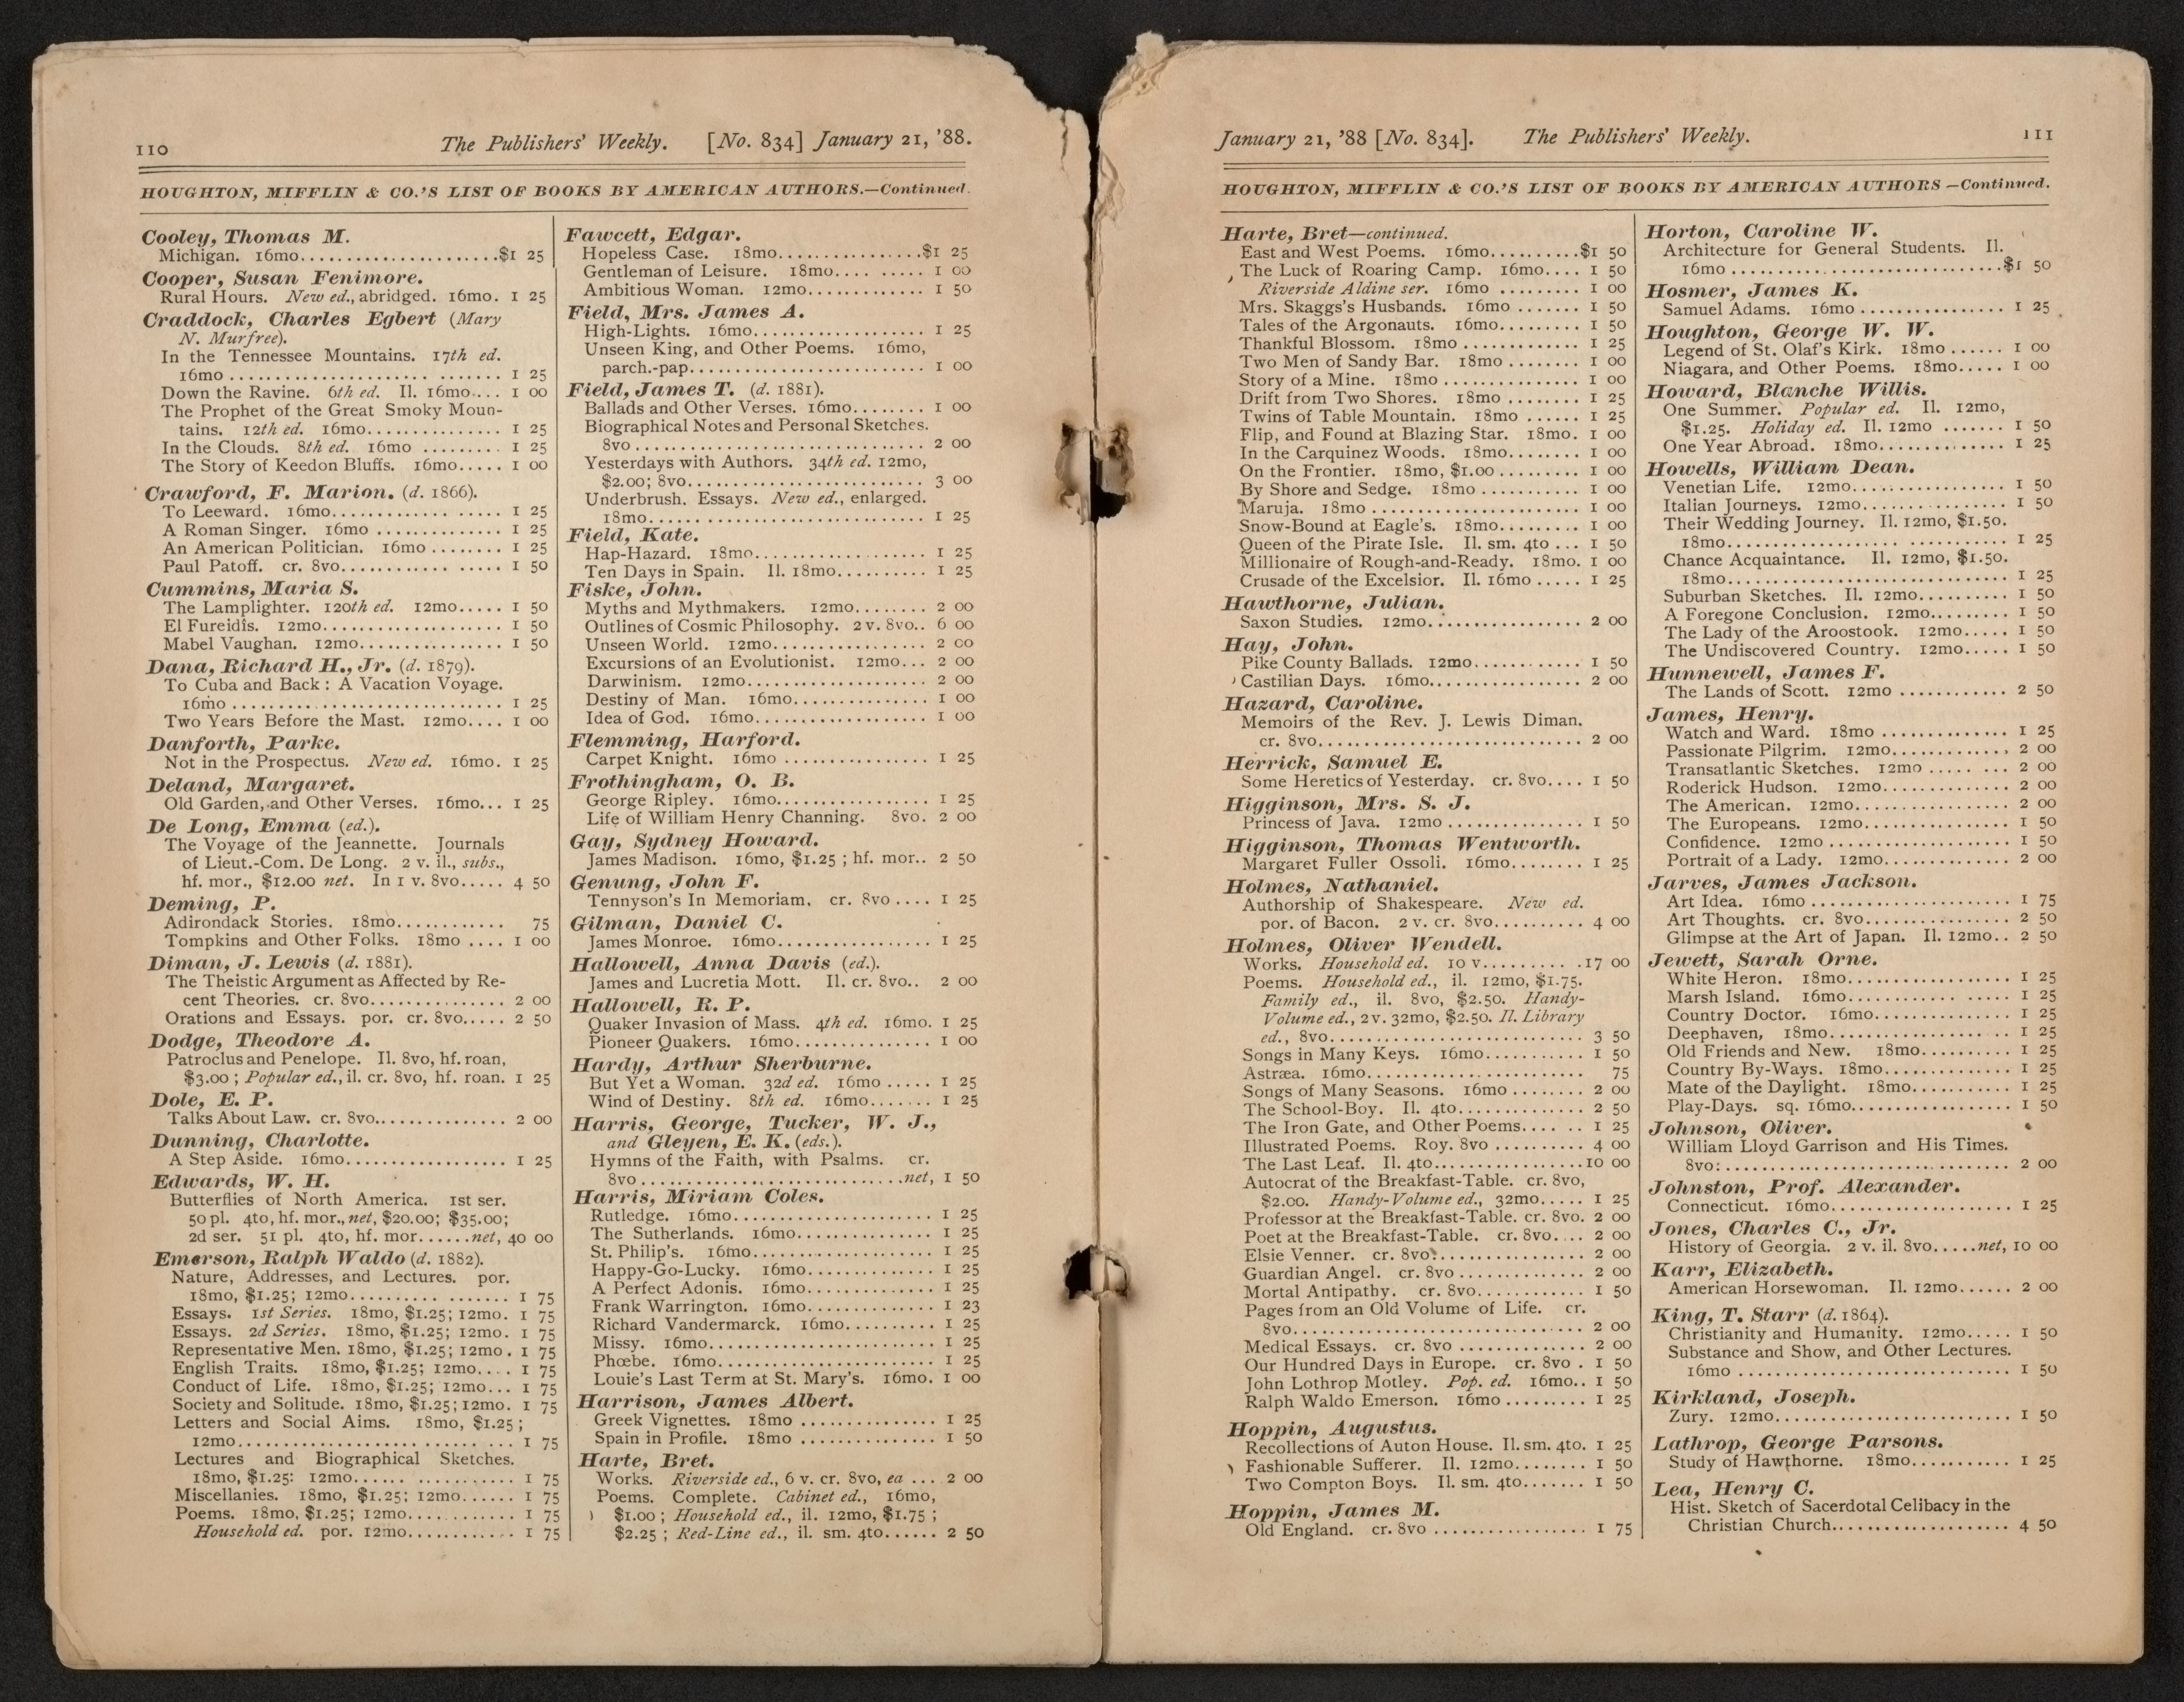 110
The Publishers' Weekly. [No. 834] January 21, '88.
HOUGHTON, MIFFLIN & CO.'S LIST OF BOOKS BY AMERICAN AUTHORS.—Continued.
Cooley, Thomas M.
Michigan. 16mo......................$1 25
Cooper, Susan Fenimore.
Rural Hours. New ed., abridged. 16mo. 1 25
Craddock, Charles Egbert (Mary
N. Murfree).
In the Tennessee Mountains. 17th ed.
16mo .............................. 1 25
Down the Ravine. 6th ed. Il. 16mo.... 1 00
The Prophet of the Great Smoky Moun-
tains. 12th ed. 16mo............... 1 25
In the Clouds. 8th ed. 16mo ......... 1 25
The Story of Keedon Bluffs. 16mo..... 1 00
Crawford, F. Marion. (d. 1866).
To Leeward. 16mo.................. 1 25
A Roman Singer. 16mo ............. 1 25
An American Politician. 16mo ........ 1 25
Paul Patoff. cr. 8vo................. 1 50
Cummins, Maria S.
The Lamplighter. 120th ed. 12mo..... 1 50
El Fureidis. 12mo................... 1 50
Mabel Vaughan. 12mo............... 1 50
Dana, Richard H., Jr. (d. 1879).
To Cuba and Back : A Vacation Voyage.
16mo .............................. 1 25
Two Years Before the Mast. 12mo.... 1 00
Danforth, Parke.
Not in the Prospectus. New ed. 16mo. 1 25
Deland, Margaret.
Old Garden, and Other Verses. 16mo... 1 25
De Long, Emma (ed.).
The Voyage of the Jeannette. Journals
of Lieut.-Com. De Long. 2 v. il., subs.,
hf. mor., $12.00 net. In 1 v. 8vo..... 4 50
Deming, P.
Adirondack Stories. 18mo............ 75
Tompkins and Other Folks. 18mo .... 1 00
Diman, J. Lewis (d. 1881).
The Theistic Argument as Affected by Re-
cent Theories. cr. 8vo............... 2 00
Orations and Essays. por. cr. 8vo..... 2 50
Dodge, Theodore A.
Patroclus and Penelope. Il. 8vo, hf. roan,
$3.00 ; Popular ed., il. cr. 8vo, hf. roan. 1 25
Dole, E. P.
Talks About Law. cr. 8vo.............. 2 00
Dunning, Charlotte.
A Step Aside. 16mo.................. 1 25
Edwards, W. H.
Butterflies of North America. 1st ser.
50 pl. 4to, hf. mor., net, $20.00; $35.00;
2d ser. 51 pl. 4to, hf. mor......net, 40 00
Emerson, Ralph Waldo (d. 1882).
Nature, Addresses, and Lectures. por.
18mo, $1.25; 12mo.................. 1 75
Essays. 1st Series. 18mo, $1.25; 12mo. 1 75
Essays. 2d Series. 18mo, $1.25; 12mo. 1 75
Representative Men. 18mo, $1.25; 12mo. 1 75
English Traits. 18mo, $1.25; 12mo.... 1 75
Conduct of Life. 18mo, $1.25; 12mo... 1 75
Society and Solitude. 18mo, $1.25; 12mo. 1 75
Letters and Social Aims. 18mo, $1.25 ;
12mo.............................. 1 75
Lectures and Biographical Sketches.
18mo, $1.25: 12mo................. 1 75
Miscellanies. 18mo, $1.25; 12mo...... 1 75
Poems. 18mo, $1.25; 12mo............ 1 75
Household ed. por. 12mo............ 1 75
Fawcett, Edgar.
Hopeless Case. 18mo................$1 25
Gentleman of Leisure. 18mo.......... 1 00
Ambitious Woman. 12mo............. 1 50
Field, Mrs. James A.
High-Lights. 16mo................... 1 25
Unseen King, and Other Poems. 16mo,
parch.-pap.......................... 1 00
Field, James T. (d. 1881).
Ballads and Other Verses. 16mo........ 1 00
Biographical Notes and Personal Sketches.
8vo ................................ 2 00
Yesterdays with Authors. 34th ed. 12mo,
$2.00; 8vo.......................... 3 00
Underbrush. Essays. New ed., enlarged.
18mo............................... 1 25
Field, Kate.
Hap-Hazard. 18mo................... 1 25
Ten Days in Spain. Il. 18mo.......... 1 25
Fiske, John.
Myths and Mythmakers. 12mo........ 2 00
Outlines of Cosmic Philosophy. 2 v. 8vo.. 6 00
Unseen World. 12mo................. 2 00
Excursions of an Evolutionist. 12mo... 2 00
Darwinism. 12mo.................... 2 00
Destiny of Man. 16mo................ 1 00
Idea of God. 16mo................... 1 00
Flemming, Harford.
Carpet Knight. 16mo ................ 1 25
Frothingham, O. B.
George Ripley. 16mo................. 1 25
Life of William Henry Channing. 8vo. 2 00
Gay, Sydney Howard.
James Madison. 16mo, $1.25 ; hf. mor.. 2 50
Genung, John F.
Tennyson's In Memoriam. cr. 8vo .... 1 25
Gilman, Daniel C.
James Monroe. 16mo................. 1 25
Hallowell, Anna Davis (ed.).
James and Lucretia Mott. Il. cr. 8vo.. 2 00
Hallowell, R. P.
Quaker Invasion of Mass. 4th ed. 16mo. 1 25
Pioneer Quakers. 16mo............... 1 00
Hardy, Arthur Sherburne.
But Yet a Woman. 32d ed. 16mo ..... 1 25
Wind of Destiny. 8th ed. 16mo....... 1 25
Harris, George, Tucker, W. J.,
and Gleyen, E. K. (eds.).
Hymns of the Faith, with Psalms. cr.
8vo .............................net, 1 50
Harris, Miriam Coles.
Rutledge. 16mo...................... 1 25
The Sutherlands. 16mo............... 1 25
St. Philip's. 16mo.................... 1 25
Happy-Go-Lucky. 16mo.............. 1 25
A Perfect Adonis. 16mo.............. 1 25
Frank Warrington. 16mo............. 1 23
Richard Vandermarck. 16mo.......... 1 25
Missy. 16mo......................... 1 25
Phœbe. 16mo........................ 1 25
Louie's Last Term at St. Mary's. 16mo. 1 00
Harrison, James Albert.
Greek Vignettes. 18mo ............... 1 25
Spain in Profile. 18mo ............... 1 50
Harte, Bret.
Works. Riverside ed., 6 v. cr. 8vo, ea ... 2 00
Poems. Complete. Cabinet ed., 16mo,
$1.00 ; Household ed., il. 12mo, $1.75 ;
$2.25 ; Red-Line ed., il. sm. 4to...... 2 50
January 21, '88 [No. 834]. The Publishers' Weekly.
111
HOUGHTON, MIFFLIN & CO.'S LIST OF BOOKS BY AMERICAN AUTHORS —Continued.
Harte, Bret—continued.
East and West Poems. 16mo..........$1 50
The Luck of Roaring Camp. 16mo.... 1 50
Riverside Aldine ser. 16mo ......... 1 00
Mrs. Skaggs's Husbands. 16mo ....... 1 50
Tales of the Argonauts. 16mo......... 1 50
Thankful Blossom. 18mo ............. 1 25
Two Men of Sandy Bar. 18mo ........ 1 00
Story of a Mine. 18mo ............... 1 00
Drift from Two Shores. 18mo ........ 1 25
Twins of Table Mountain. 18mo ...... 1 25
Flip, and Found at Blazing Star. 18mo. 1 00
In the Carquinez Woods. 18mo........ 1 00
On the Frontier. 18mo, $1.00 ......... 1 00
By Shore and Sedge. 18mo ........... 1 00
Maruja. 18mo ....................... 1 00
Snow-Bound at Eagle's. 18mo......... 1 00
Queen of the Pirate Isle. Il. sm. 4to ... 1 50
Millionaire of Rough-and-Ready. 18mo. 1 00
Crusade of the Excelsior. Il. 16mo ..... 1 25
Hawthorne, Julian.
Saxon Studies. 12mo................. 2 00
Hay, John.
Pike County Ballads. 12mo............ 1 50
Castilian Days. 16mo................. 2 00
Hazard, Caroline.
Memoirs of the Rev. J. Lewis Diman.
cr. 8vo............................. 2 00
Herrick, Samuel E.
Some Heretics of Yesterday. cr. 8vo.... 1 50
Higginson, Mrs. S. J.
Princess of Java. 12mo ............... 1 50
Higginson, Thomas Wentworth.
Margaret Fuller Ossoli. 16mo........ 1 25
Holmes, Nathaniel.
Authorship of Shakespeare. New ed.
por. of Bacon. 2 v. cr. 8vo.......... 4 00
Holmes, Oliver Wendell.
Works. Household ed. 10 v...........17 00
Poems. Household ed., il. 12mo, $1.75.
Family ed., il. 8vo, $2.50. Handy-
Volume ed., 2 v. 32mo, $2.50. Il. Library
ed., 8vo............................ 3 50
Songs in Many Keys. 16mo........... 1 50
Astræa. 16mo........................ 75
Songs of Many Seasons. 16mo ........ 2 00
The School-Boy. Il. 4to.............. 2 50
The Iron Gate, and Other Poems...... 1 25
Illustrated Poems. Roy. 8vo .......... 4 00
The Last Leaf. Il. 4to................10 00
Autocrat of the Breakfast-Table. cr. 8vo,
$2.00. Handy-Volume ed., 32mo..... 1 25
Professor at the Breakfast-Table. cr. 8vo. 2 00
Poet at the Breakfast-Table. cr. 8vo.... 2 00
Elsie Venner. cr. 8vo................. 2 00
Guardian Angel. cr. 8vo .............. 2 00
Mortal Antipathy. cr. 8vo............ 1 50
Pages from an Old Volume of Life. cr.
8vo................................ 2 00
Medical Essays. cr. 8vo .............. 2 00
Our Hundred Days in Europe. cr. 8vo . 1 50
John Lothrop Motley. Pop. ed. 16mo.. 1 50
Ralph Waldo Emerson. 16mo ......... 1 25
Hoppin, Augustus.
Recollections of Auton House. Il. sm. 4to. 1 25
Fashionable Sufferer. Il. 12mo........ 1 50
Two Compton Boys. Il. sm. 4to....... 1 50
Hoppin, James M.
Old England. cr. 8vo ................. 1 75
Horton, Caroline W.
Architecture for General Students. Il.
16mo ..............................$1 50
Hosmer, James K.
Samuel Adams. 16mo ................ 1 25
Houghton, George W. W.
Legend of St. Olaf's Kirk. 18mo ...... 1 00
Niagara, and Other Poems. 18mo..... 1 00
Howard, Blanche Willis.
One Summer. Popular ed. Il. 12mo,
$1.25. Holiday ed. Il. 12mo ....... 1 50
One Year Abroad. 18mo............. 1 25
Howells, William Dean.
Venetian Life. 12mo................. 1 50
Italian Journeys. 12mo............... 1 50
Their Wedding Journey. Il. 12mo, $1.50.
18mo.............................. 1 25
Chance Acquaintance. Il. 12mo, $1.50.
18mo............................... 1 25
Suburban Sketches. Il. 12mo.......... 1 50
A Foregone Conclusion. 12mo......... 1 50
The Lady of the Aroostook. 12mo..... 1 50
The Undiscovered Country. 12mo..... 1 50
Hunnewell, James F.
The Lands of Scott. 12mo ............ 2 50
James, Henry.
Watch and Ward. 18mo .............. 1 25
Passionate Pilgrim. 12mo............. 2 00
Transatlantic Sketches. 12mo ........ 2 00
Roderick Hudson. 12mo.............. 2 00
The American. 12mo................. 2 00
The Europeans. 12mo................ 1 50
Confidence. 12mo .................... 1 50
Portrait of a Lady. 12mo.............. 2 00
Jarves, James Jackson.
Art Idea. 16mo ...................... 1 75
Art Thoughts. cr. 8vo................ 2 50
Glimpse at the Art of Japan. Il. 12mo.. 2 50
Jewett, Sarah Orne.
White Heron. 18mo.................. 1 25
Marsh Island. 16mo.................. 1 25
Country Doctor. 16mo................ 1 25
Deephaven, 18mo.................... 1 25
Old Friends and New. 18mo.......... 1 25
Country By-Ways. 18mo............. 1 25
Mate of the Daylight. 18mo........... 1 25
Play-Days. sq. 16mo................. 1 50
Johnson, Oliver.
William Lloyd Garrison and His Times.
8vo:............................... 2 00
Johnston, Prof. Alexander.
Connecticut. 16mo................... 1 25
Jones, Charles C., Jr.
History of Georgia. 2 v. il. 8vo.....net, 10 00
Karr, Elizabeth.
American Horsewoman. Il. 12mo...... 2 00
King, T. Starr (d. 1864).
Christianity and Humanity. 12mo..... 1 50
Substance and Show, and Other Lectures.
16mo .............................. 1 50
Kirkland, Joseph.
Zury. 12mo.......................... 1 50
Lathrop, George Parsons.
Study of Hawthorne. 18mo........... 1 25
Lea, Henry C.
Hist. Sketch of Sacerdotal Celibacy in the
Christian Church.................... 4 50